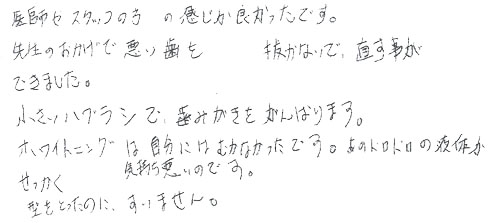 医師やスタッフの方の感じが良かったです。
先生のおかげで悪い歯を 抜かないで、直す事が
できました。
小さいハブラシで、歯みがきをがんばります。
ホワイトニングは自分にはむかなかったです。あのドロドロの液体が
気持ち悪いのです。
せっかく
型をとったのに、すいません。